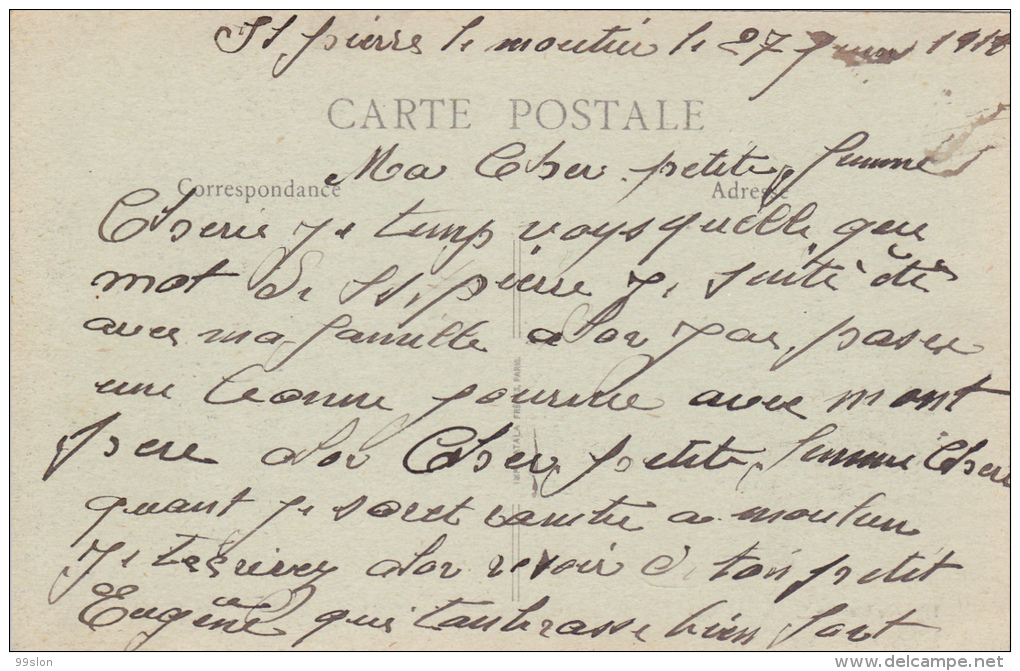 St pierre le moutier le 27 juin 1918
CARTE POSTALE
Ma Cher petite femme
Correspondance
Adresse
Cherie je temp voys quelle que
mot de St pierre je suite été
avec ma famille alor jae pasee
une bonne journee avec mont
pere alor Cher petite femme Cheri
quant je soret a moulin
je tecrirey alor revoir de ton petit
Eugène qui tanbrasse bien fort
99slon
www.delcampe.net